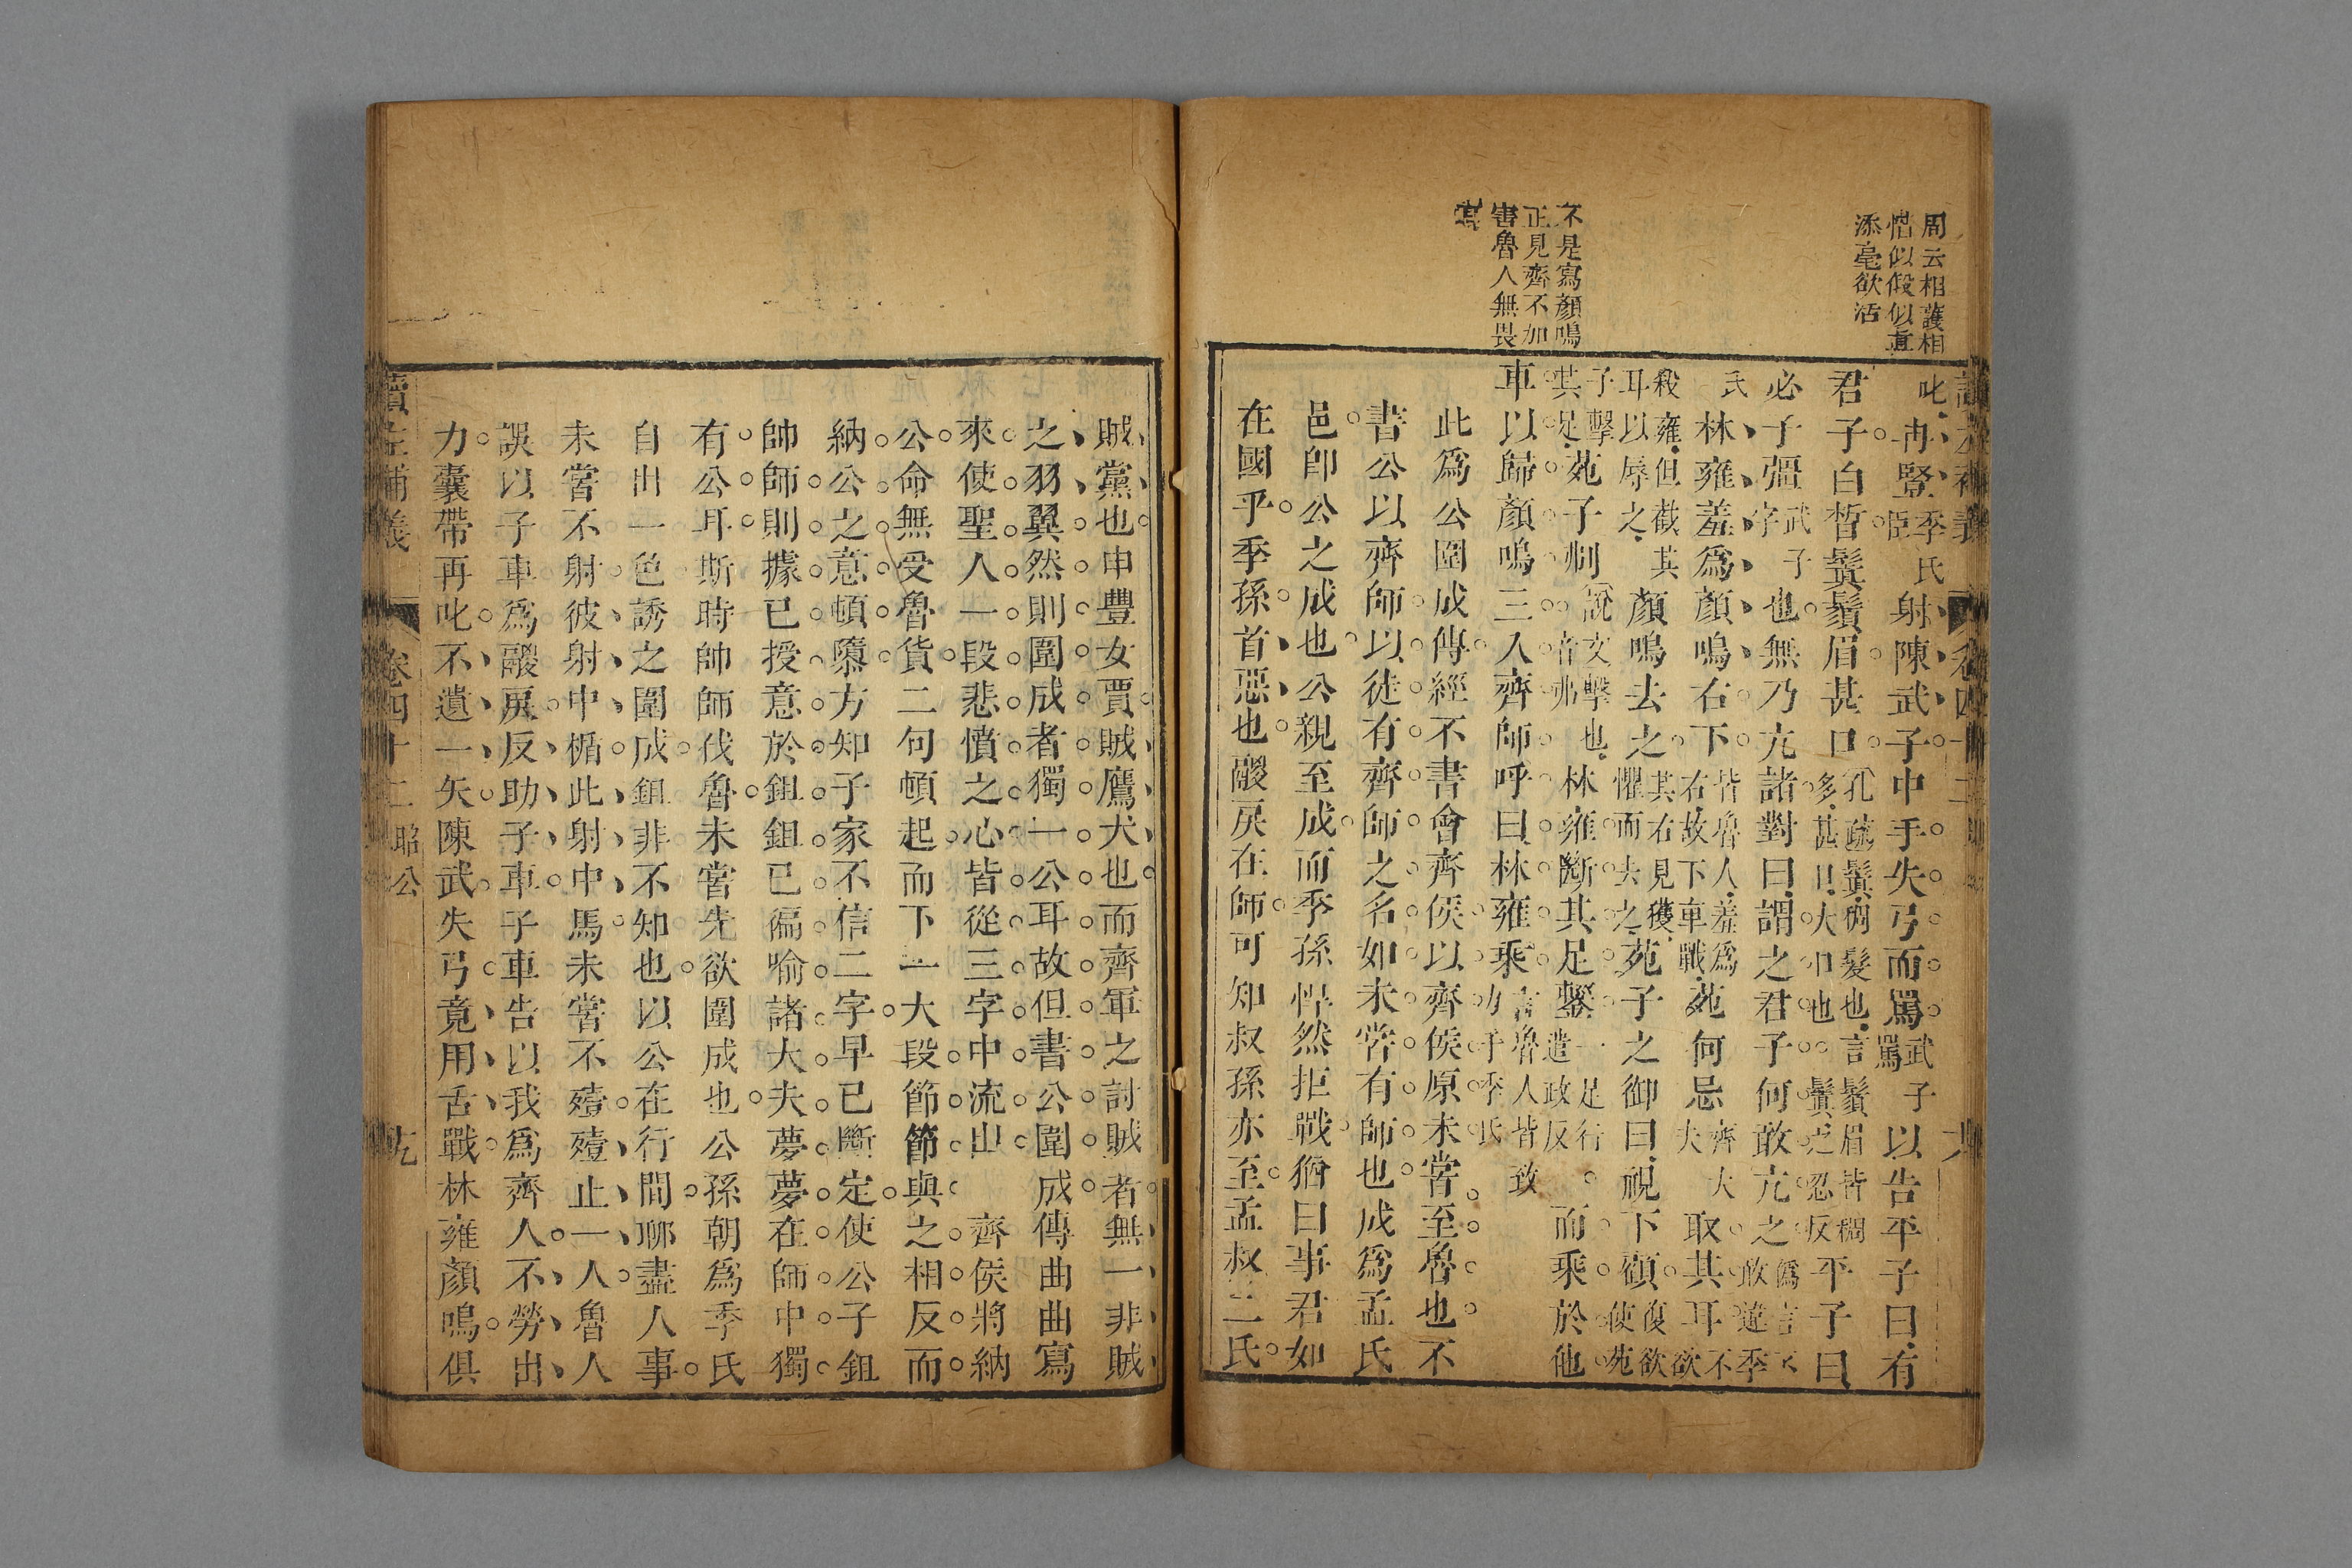 周云相護相
惜似假似真
添毫欲活
不是寫顏鳴
正見齊不加
害魯人無畏
叱冉豎季氏臣射陳武子中手失弓而罵武子罵以告平子曰有
君子白晳鬒鬚眉甚口孔疏鬒稠髮也言鬚眉皆稠多甚口大口也鬒之忍反平子曰
必子彊武子字也無乃亢諸對曰謂之君子何敢亢之僞言不敢違季
氏林雍羞爲顏鳴右下皆魯人羞爲右故下車戰苑何忌齊大夫取其耳不欲
殺雍但截其耳以辱之顏鳴去之其右見獲懼而去之苑子之御曰視下顧復欲使苑
子擊其足苑子刜說文擊也音弗林雍斷其足鑋一足行遣政反而乘於他
車以歸顏鳴三入齊師呼曰林雍乘言魯人皆致力于季氏
此爲公圍成傳經不書會齊侯以齊侯原未嘗至魯也不
書公以齊師以徒有齊師之名如未嘗有師也成爲孟氏
邑卽公之成也公親至成而季孫悍然拒戰猶曰事君如
在國乎季孫首惡也鬷戾在師可知叔孫亦至孟叔二氏
賊黨也申豐女賈賊鷹犬也而齊軍之討賊者無一非賊
之羽翼然則圍成者獨一公耳故但書公圍成傳曲曲寫
來使聖人一段悲憤之心皆從三字中流出　齊侯將納
公命無受魯貨二句頓起而下一大段節節與之相反而
納公之意頓隳方知子家不信二字早已斷定使公子鉏
帥師則據已授意於鉏鉏已徧喻諸大夫夢夢在師中獨
有公耳斯時帥師伐魯未嘗先欲圍成也公孫朝爲季氏
自出一色誘之圍成鉏非不知也以公在行間聊盡人事
未嘗不射彼射中楯此射中馬未嘗不殪殪止一人魯人
誤以子車爲鬷戾反助子車子車告以我爲齊人不勞出
力囊帶再叱不遺一矢陳武失弓竟用舌戰林雍顏鳴俱
讀左補義　卷四十二　昭公